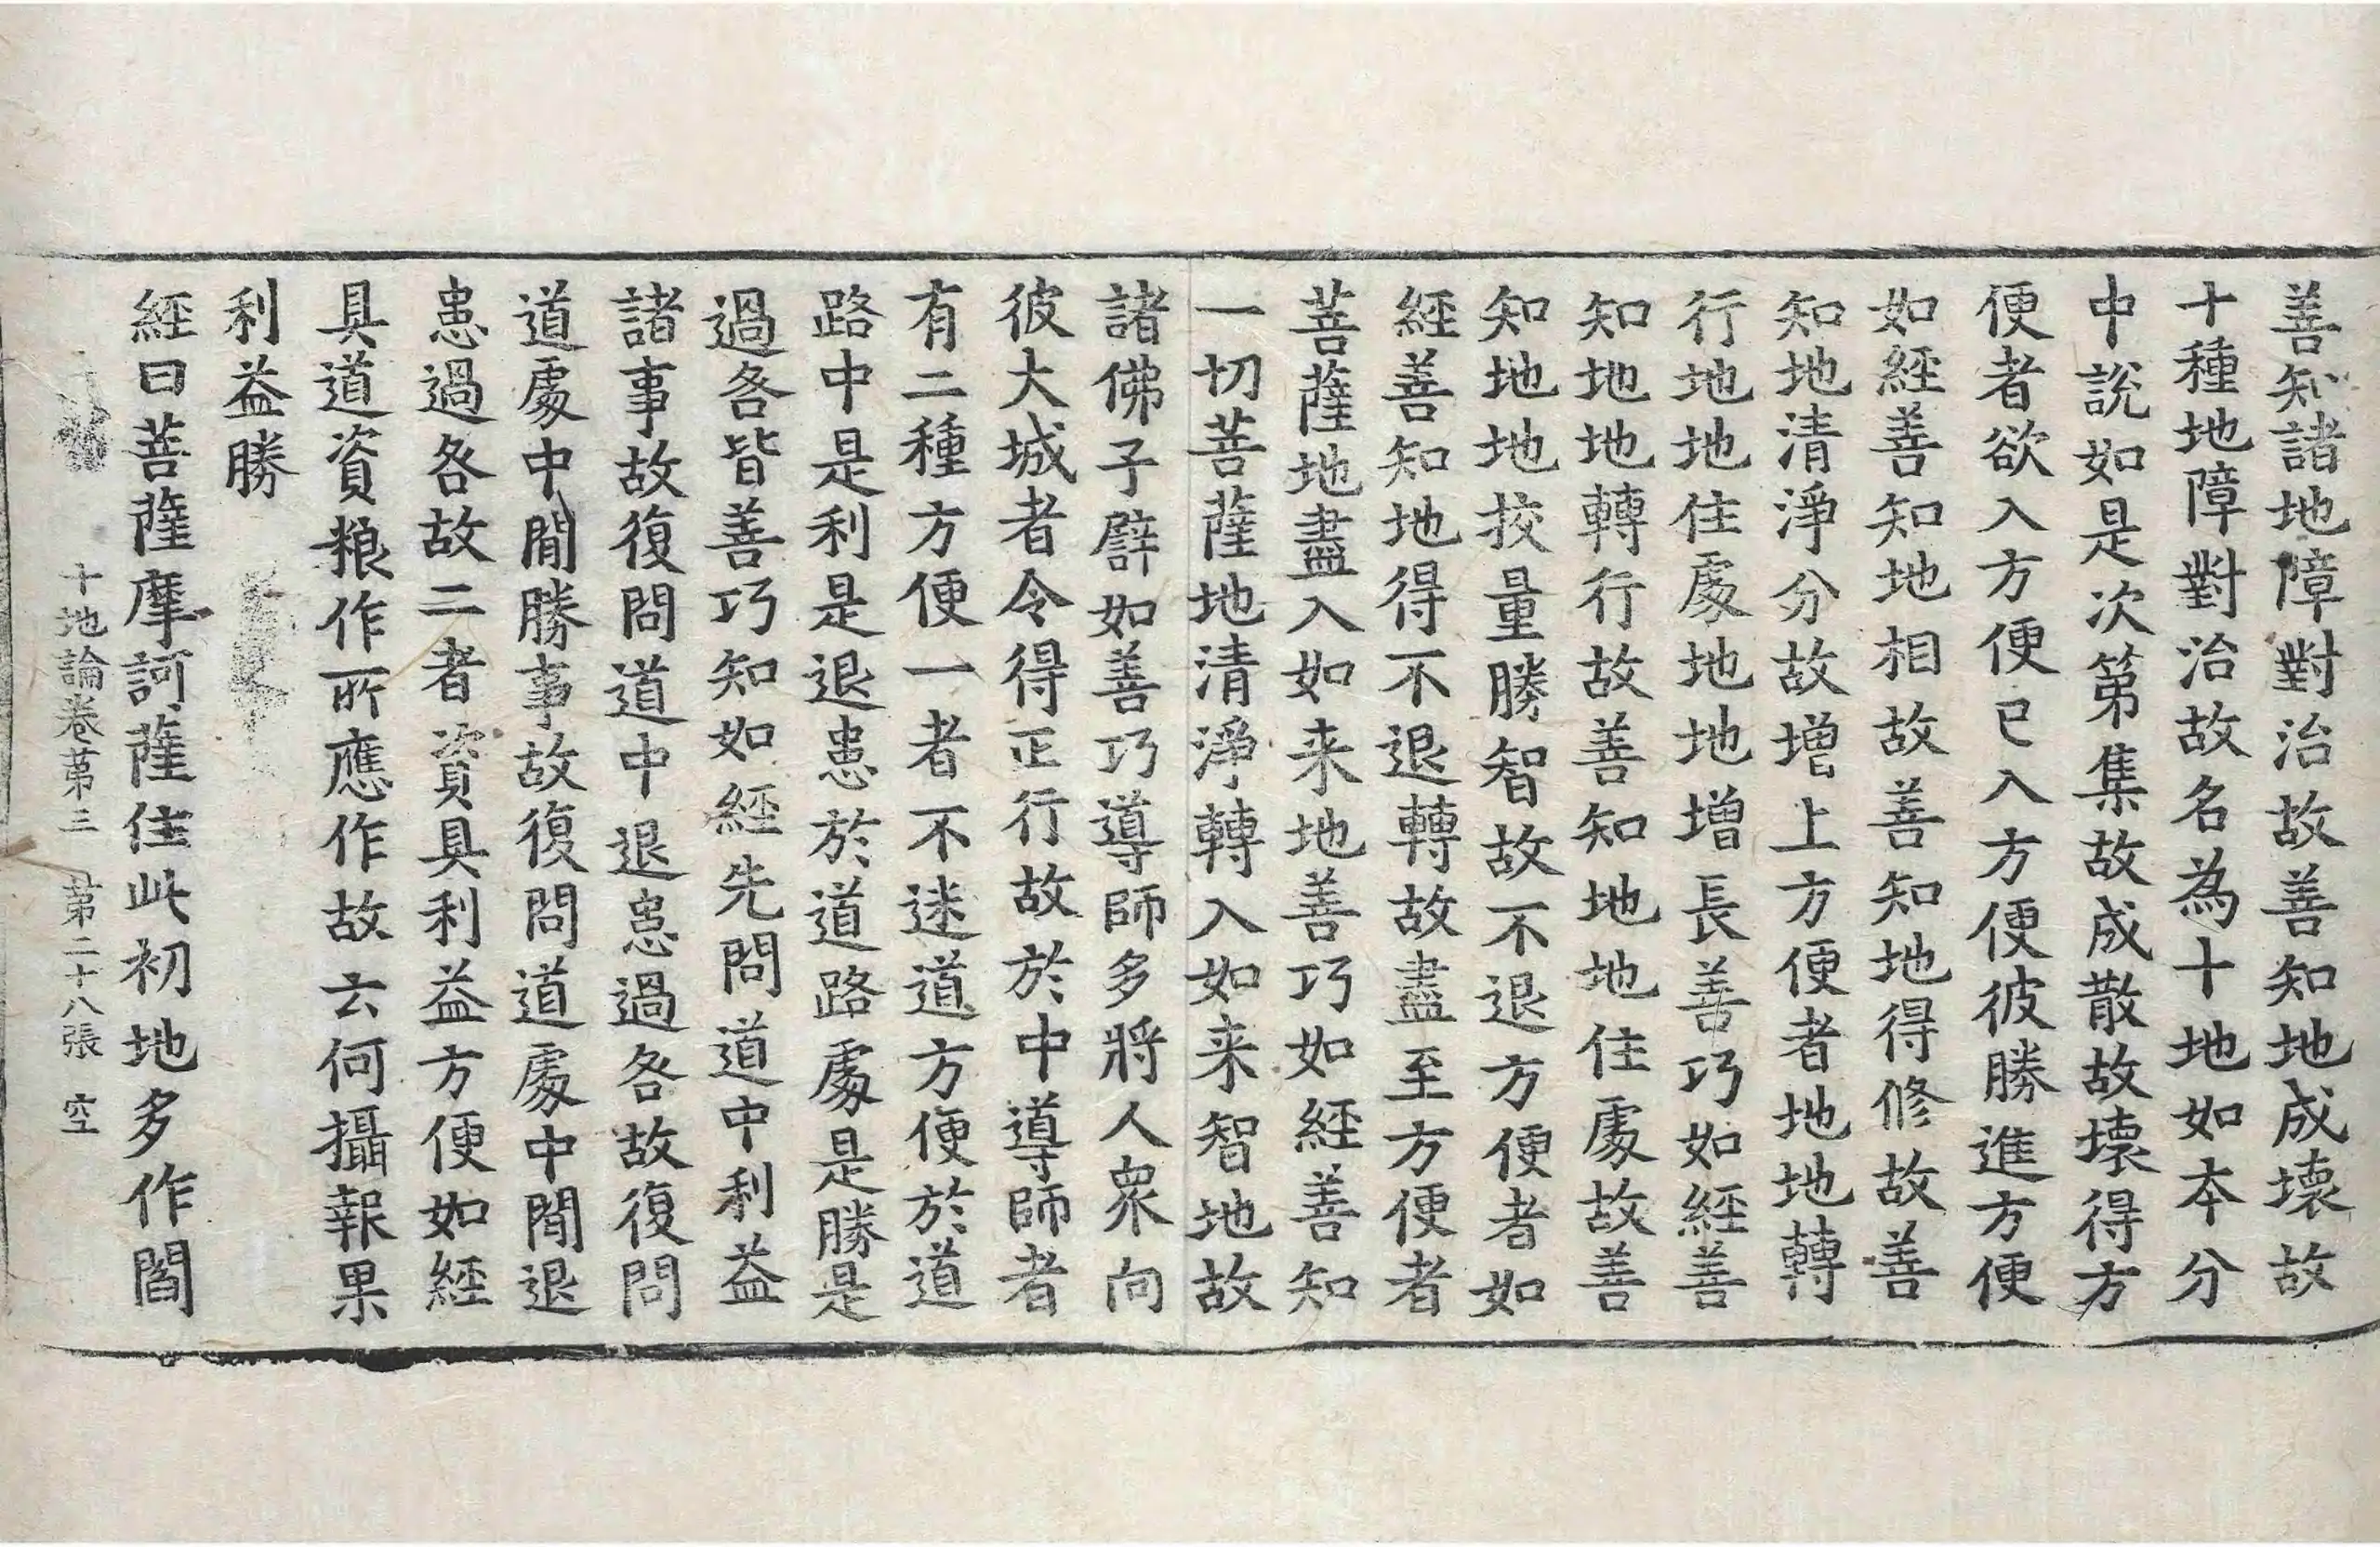 善知諸地障對治故善知地成壞故
十種地障對治故名為十地如本分
中說如是次苐集故成散故壞得方
便者欲入方便已入方便彼勝進方便
如經善知地相故善知地得修故善
知地清淨分故增上方便者地地轉
行地地住處地地增長善巧如經善
知地地轉行故善知地地住處故善
知地地挍量勝智故不退方便者如
經善知地得不退轉故盡至方便者
菩薩地盡入如来地善巧如經善知
一切菩薩地清淨轉入如来智地故
諸佛子譬如善巧導師多將人衆向
彼大城者令得正行故於中導師者
有二種方便一者不迷道方便於道
路中是利是退患於道路處是勝是
過咎皆善巧知如經先問道中利益
諸事故復問道中退患過咎故復問
道處中閒勝事故復問道處中閒退
患過咎故二者資具利益方便如經
具道資粮作所應作故云何攝報果
利益勝
經曰菩薩摩訶薩住此初地多作閻
十地論卷苐三 苐二十八張 空